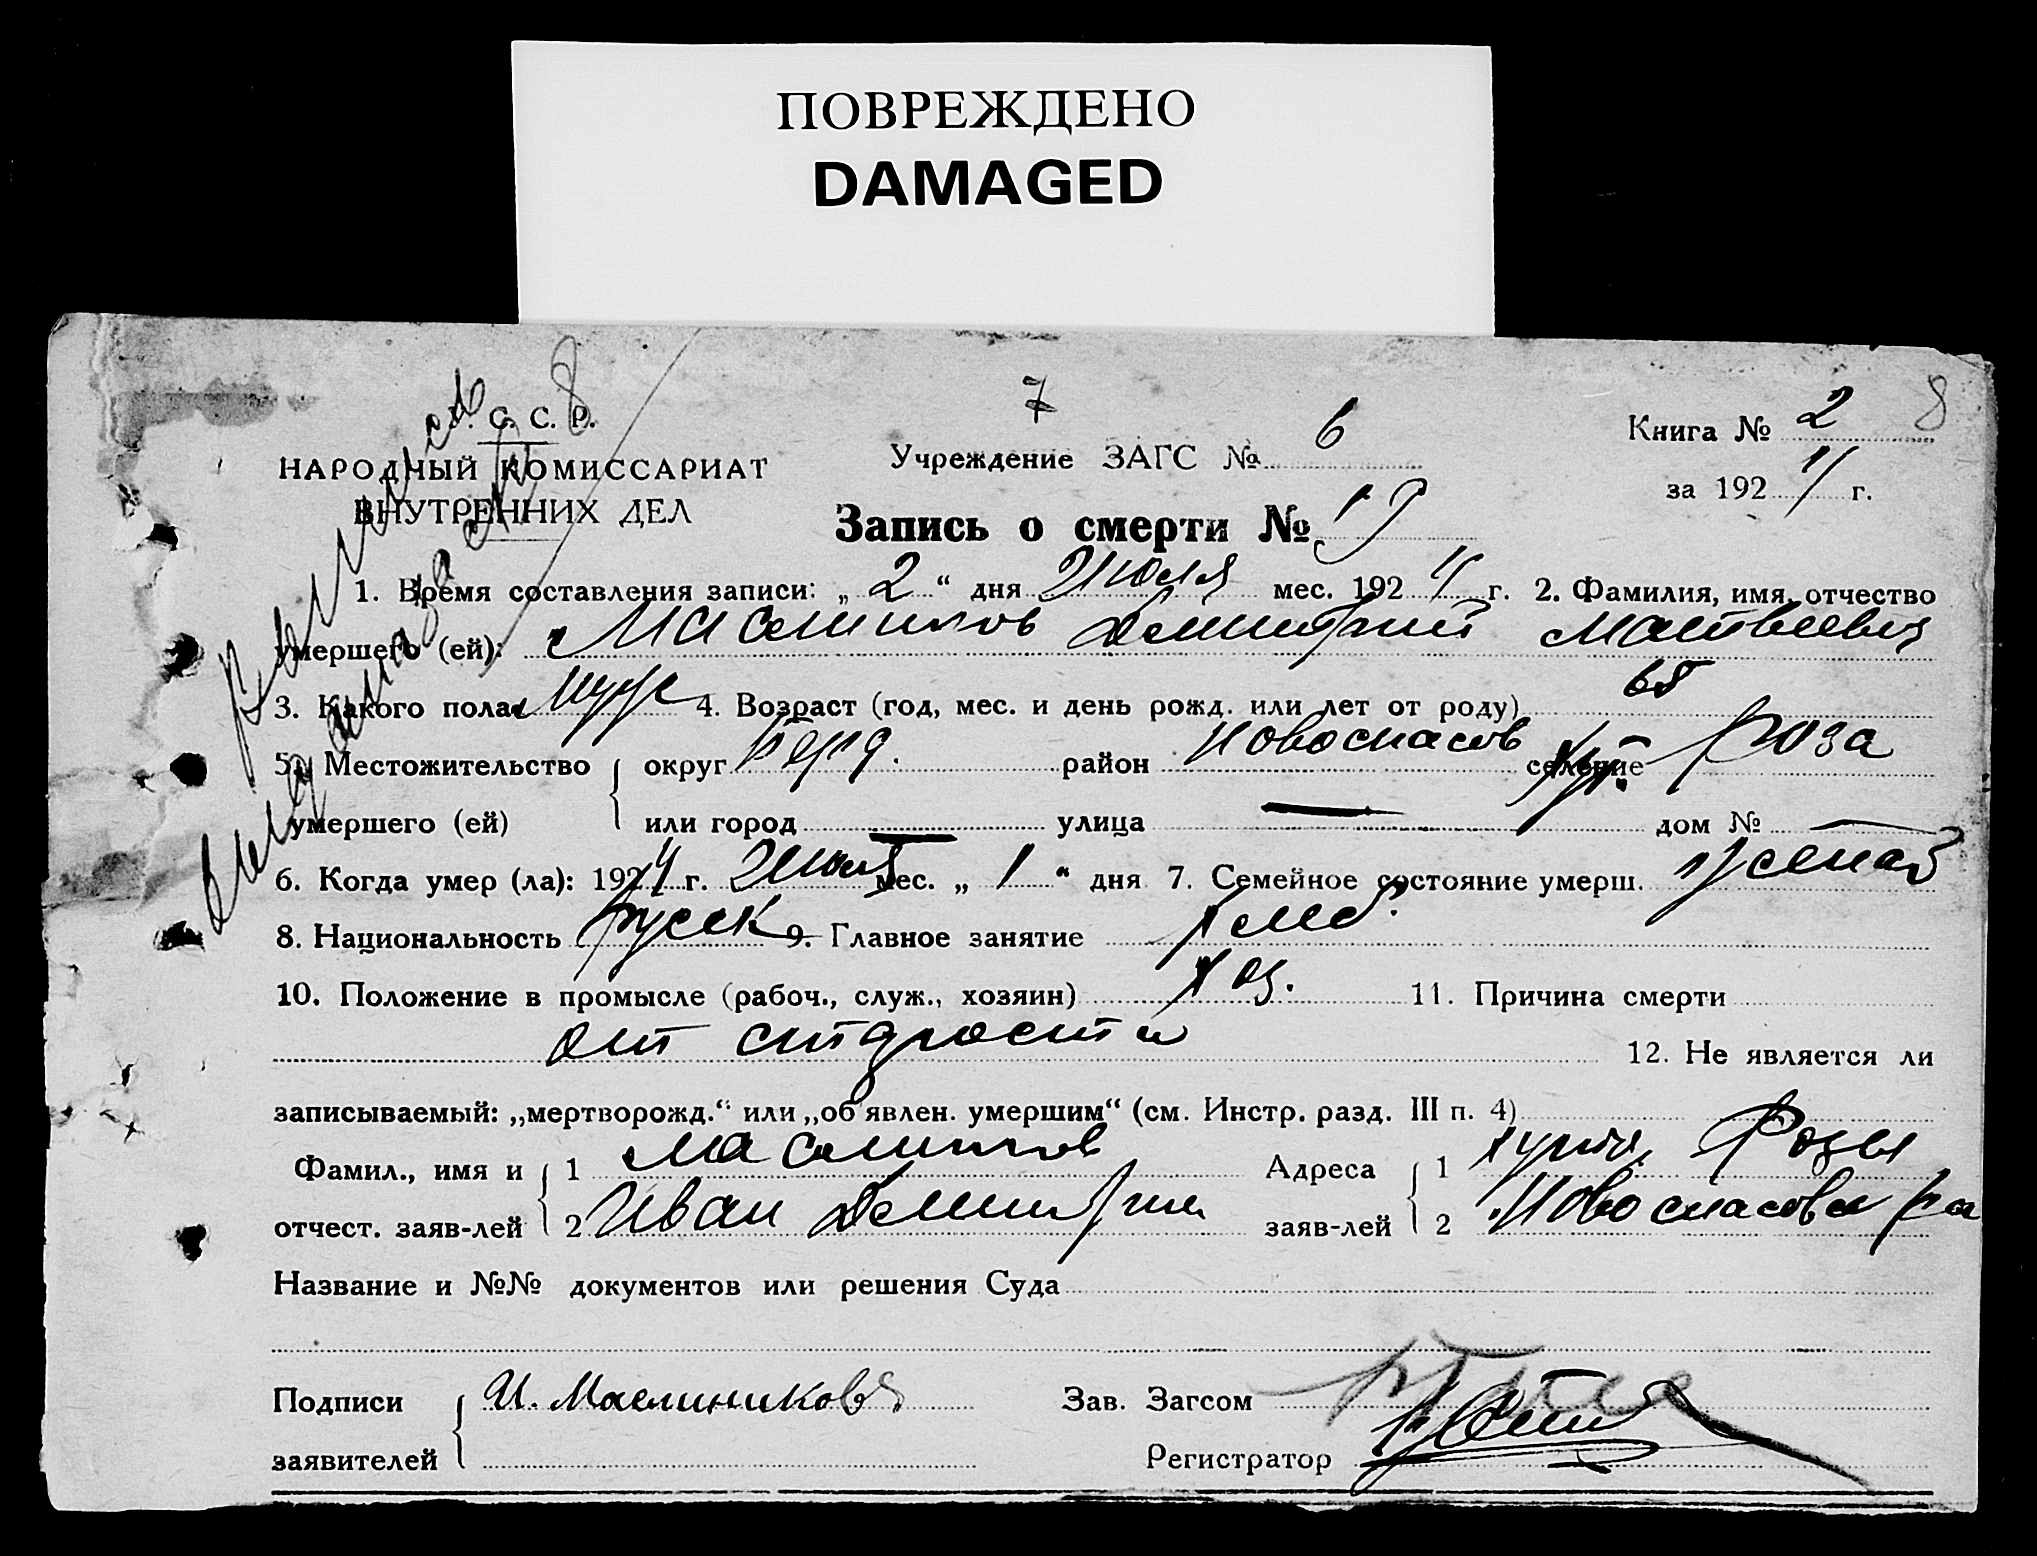 ПОВРЕЖДЕНО
DAMAGED
7
8
У. С. С. Р.
НАРОДНЫЙ КОМИССАРИАТ
ВНУТРЕННИХ ДЕЛ
Учреждение ЗАГС № 6
Книга № 2 8
за 1924 г.
Запись о смерти № 19
1. Время составления записи: „ 2 “ дня Июля мес. 1924 г. 2. Фамилия, имя, отчество
умершего (ей): Масликов Дмитрий Матвеевич
3. Какого пола муж 4. Возраст (год, мес. и день рожд. или лет от роду) 65
5. Местожительство округ Берд. район Новоспасов селение хут. Роза
умершего (ей) или город — улица — дом № —
6. Когда умер (ла): 1924 г. Июля мес. „ 1 “ дня 7. Семейное состояние умерш. женат
8. Национальность русск 9. Главное занятие хлеб.
10. Положение в промысле (рабоч., служ., хозяин) хоз. 11. Причина смерти
от старости 12. Не является ли
записываемый: „мертворожд.“ или „об'явлен. умершим“ (см. Инстр. разд. III п. 4)
Фамил., имя и 1 Масликов Адреса 1 хутор Розы
отчест. заяв-лей 2 Иван Дмитрии заяв-лей 2 Новоспасовск ра
Название и №№ документов или решения Суда
Подписи И. Зав. Загсом
заявителей Регистратор